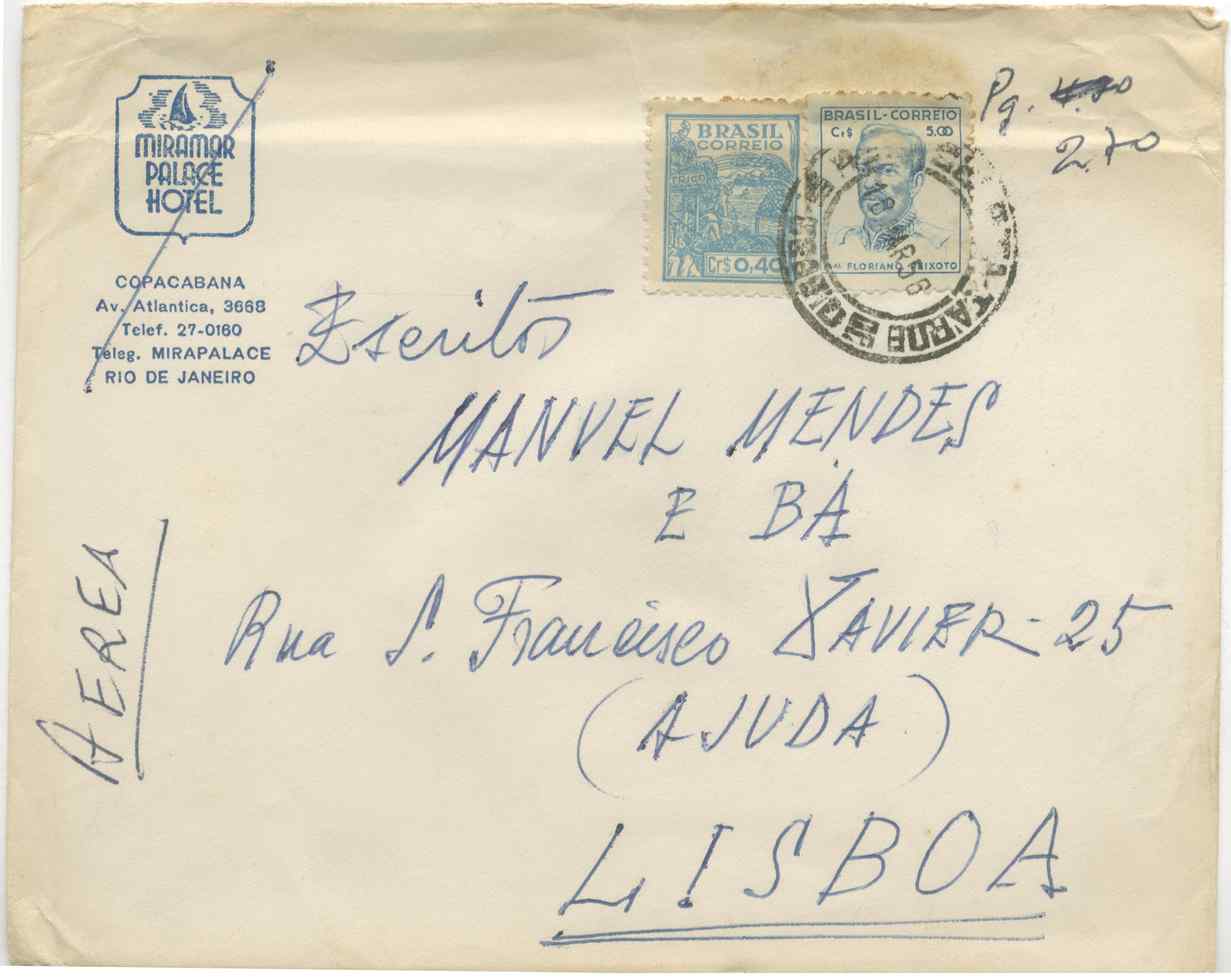 MIRAMAR
PALACE
HOTEL
COPACABANA
Av. Atlantica, 3668
Telef. 27-0160
Teleg. MIRAPALACE
RIO DE JANEIRO
BRASIL
CORREIO
TRIGO
Cr$ 0,40
BRASIL-CORREIO
Cr$ 5.00
FLORIANO PEIXOTO
18
56
A TARDE
Pg.
2.70
Escritos
MANUEL MENDES
E BÁ
Rua S. Francisco XAVIER - 25
(AJUDA)
LISBOA
AEREA